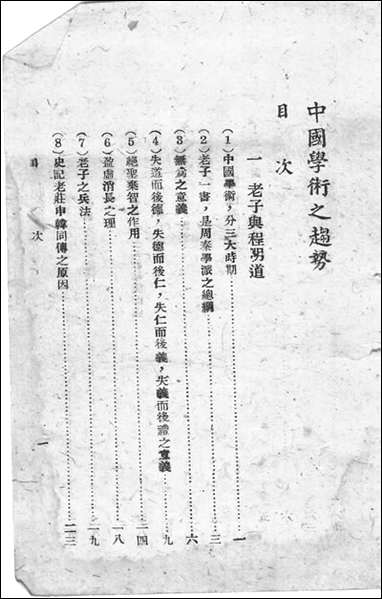 中國學術之趨勢
目次
一 老子與程明道
(1)中國學術,分三大時期……一
(2)老子一書,是周秦學派之總綱……三
(3)無為之意義……六
(4)失道而後德,失德而後仁,失仁而後義,失義而後禮之意義……九
(5)絕聖棄智之作用……一四
(6)盈虛消長之理……一八
(7)老子之兵法……一九
(8)史記老莊申韓同傳之原因……二三
目次
一